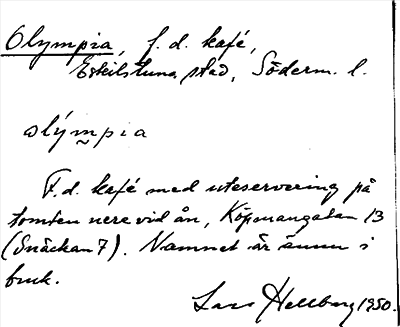 Olympia, f.d. kafé,
Eskilstuna stad, Söderm. l.
olýmpia
F.d. kafé med uteservering på
tomten nere vid ån, Köpmangatan 13
(Snäckan 7). Namnet är ännu i
bruk.
Lars Hellberg 1950.